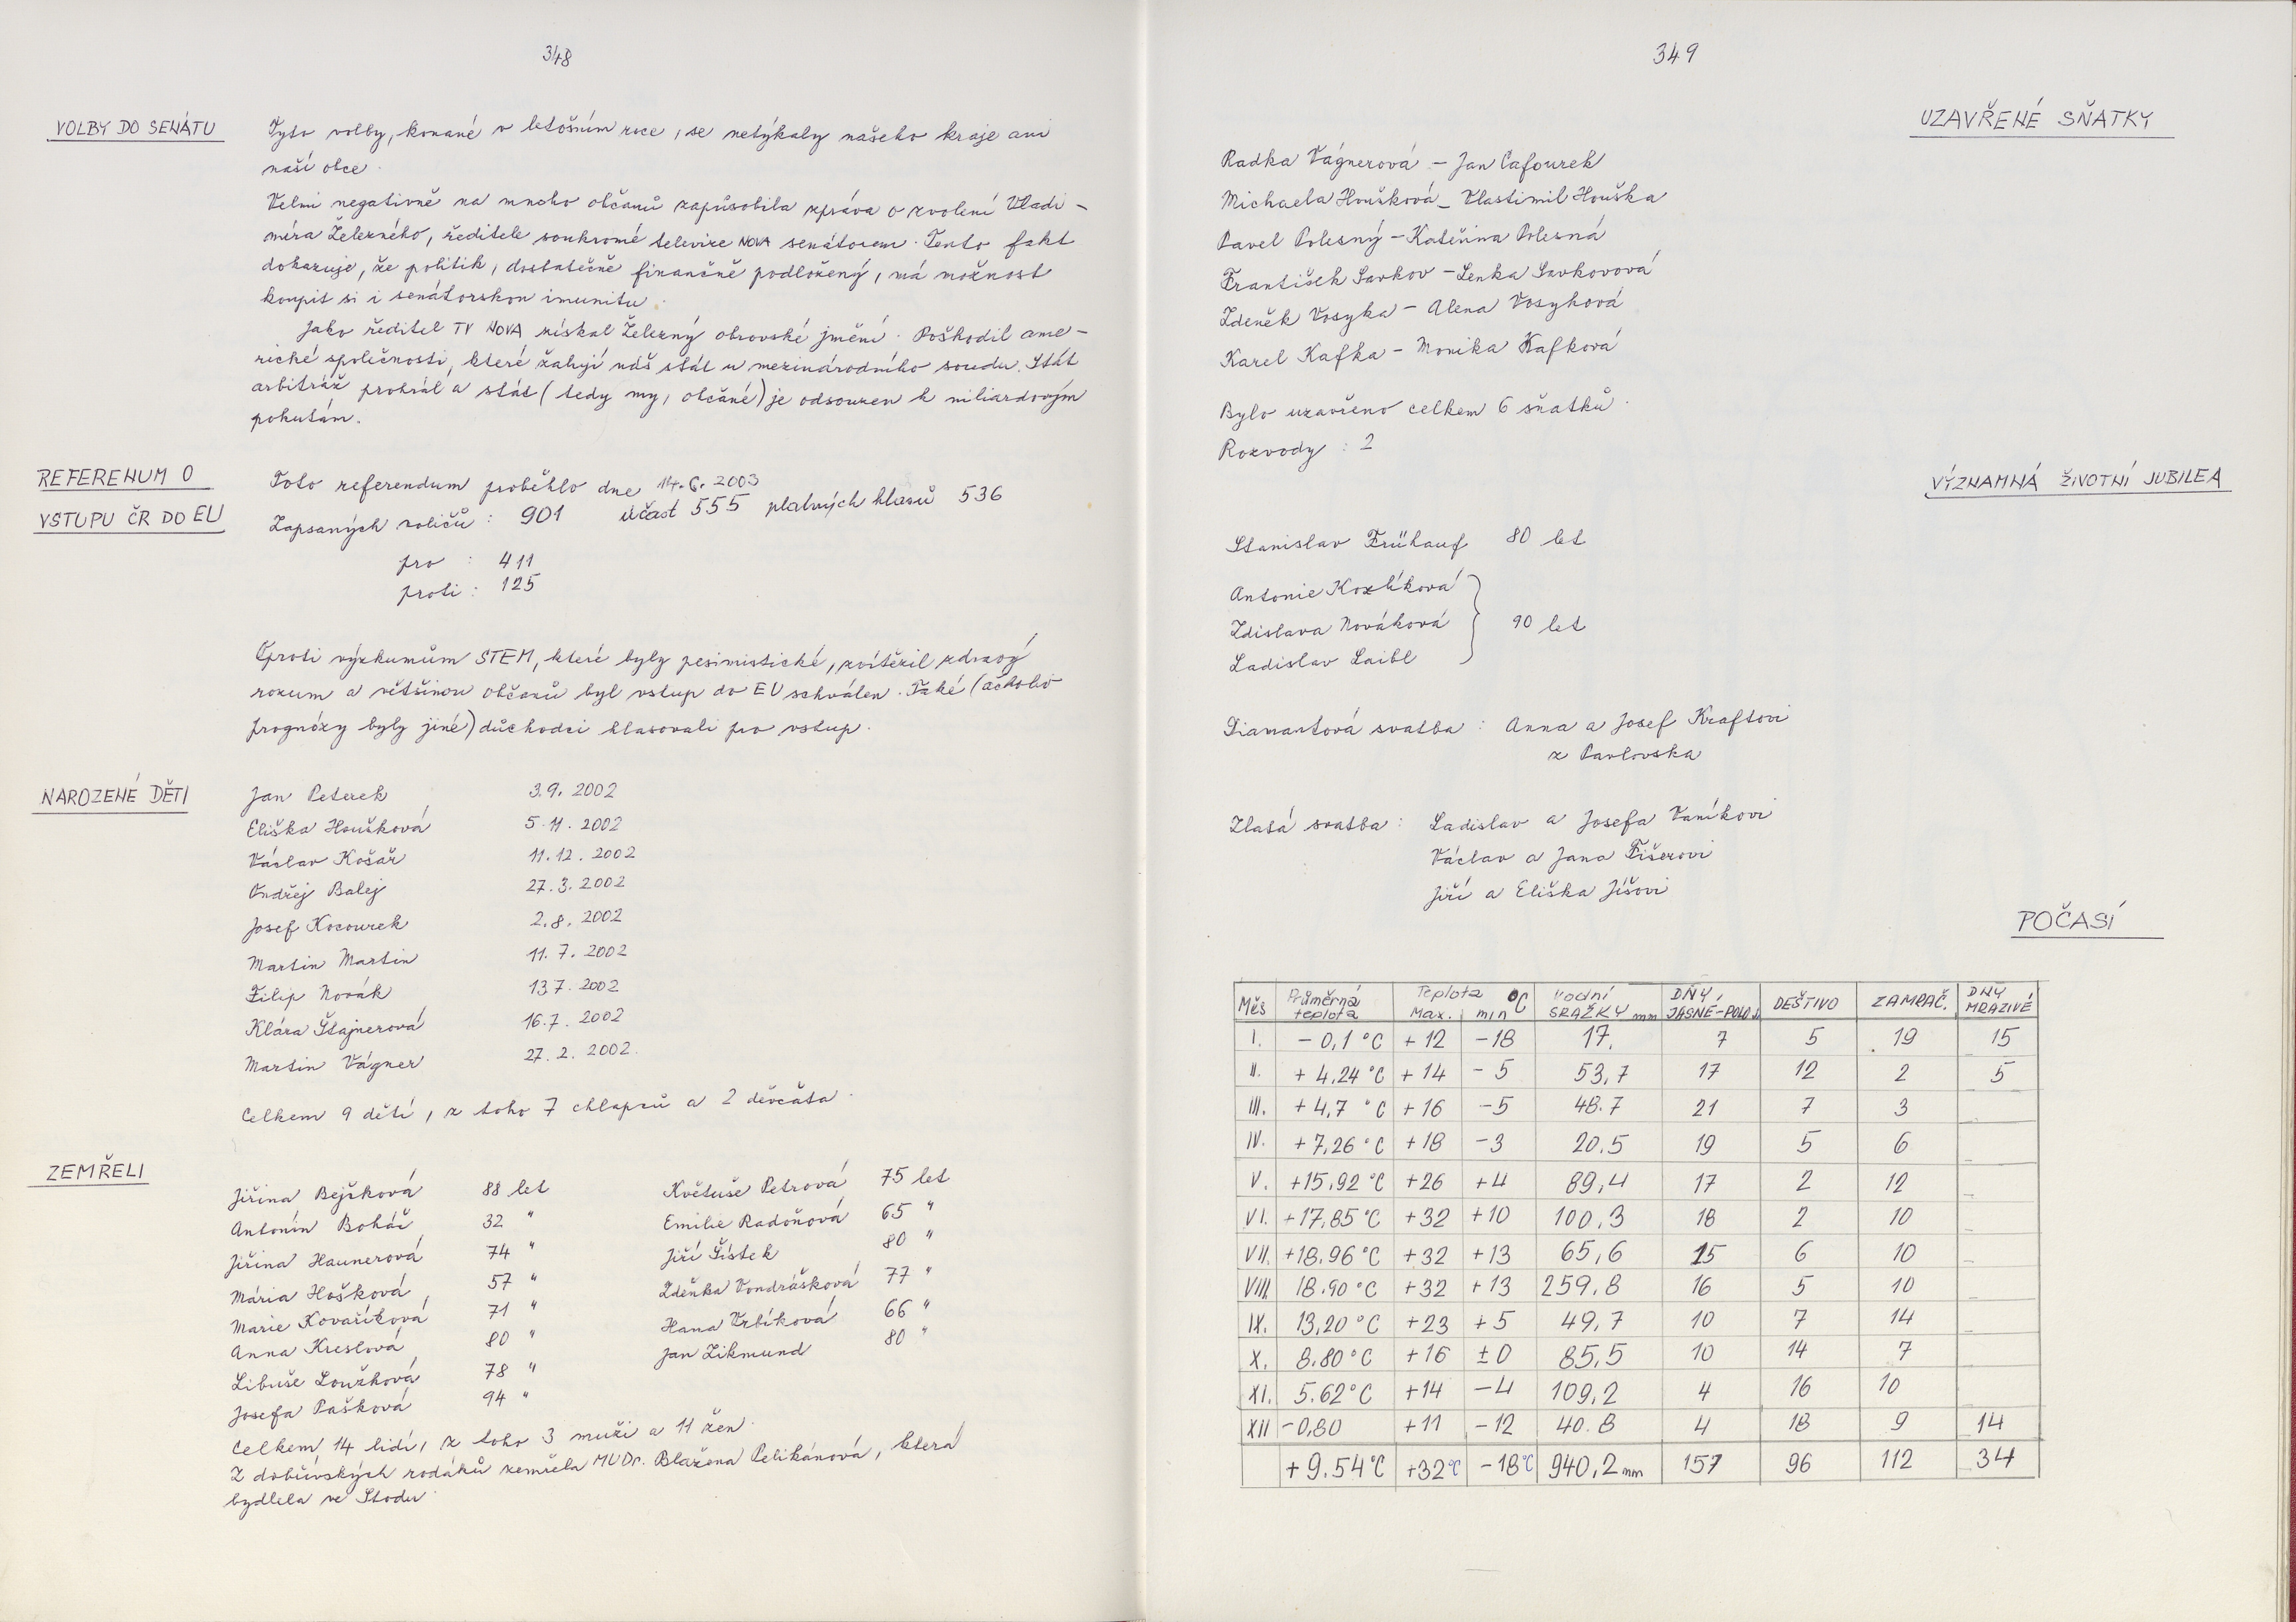 348
VOLBY DO SENÁTU
Tyto volby, konané v letošním roce, se netýkaly našeho kraje ani
naší obce.
Velmi negativně na mnoho občanů zapůsobila zpráva o zvolení Vladi-
míra Železného, ředitele soukromé televize NOVA senátorem. Tento fakt
dokazuje, že politik, dostatečně finančně podložený, má možnost
koupit si i senátorskou imunitu.
Jako ředitel TV NOVA získal Železný obrovské jmění. Poškodil ame-
rické společnosti, které žalují náš stát u mezinárodního soudu. Stát
arbitráž prohrál a stát (tedy my, občané) je odsouzen k miliardovým
pokutám.
REFERENUM O
VSTUPU ČR DO EU
Toto referendum proběhlo dne 14.6.2003
Zapsaných voličů : 901 účast 555 platných hlasů 536
pro : 411
proti : 125
Oproti výzkumům STEM, které byly pesimistické, zvítězil zdravý
rozum a většinou občanů byl vstup do EU schválen. Také (ačkoliv
prognózy byly jiné) důchodci hlasovali pro vstup.
NAROZENÉ DĚTI
Jan Peterek 3.9.2002
Eliška Houšková 5.11.2002
Václav Košař 11.12.2002
Ondřej Balej 27.3.2002
Josef Kocourek 2.8.2002
Martin Martin 11.7.2002
Filip Novák 13.7.2002
Klára Štajnerová 16.7.2002
Martin Vágner 27.2.2002.
Celkem 9 dětí, z toho 7 chlapců a 2 děvčáta.
ZEMŘELI
Jiřina Bejšková 88 let
Antonín Boháč 32 "
Jiřina Haunerová 74 "
Mária Hošková 57 "
Marie Kovaříková 71 "
Anna Kreslová 80 "
Libuše Loužková 78 "
Josefa Pašková 94 "
Květuše Petrová 75 let
Emilie Radoňová 65 "
Jiří Šístek 80 "
Zdeňka Vondrášková 77 "
Hana Vrbíková 66 "
Jan Zikmund 80 "
Celkem 14 lidí, z toho 3 muži a 11 žen.
Z dobřívských rodáků zemřela MUDr. Blažena Pelikánová, která
bydlela ve Stodu.
349
UZAVŘENÉ SŇATKY
Radka Vágnerová - Jan Cafourek
Michaela Houšková - Vlastimil Houška
Pavel Polesný - Kateřina Polesná
František Savkov - Lenka Savkovová
Zdeněk Vosyka - Alena Vosyková
Karel Kafka - Monika Kafková
Bylo uzavřeno celkem 6 sňatků.
Rozvody : 2
VÝZNAMNÁ ŽIVOTNÍ JUBILEA
Stanislav Frühauf 80 let
Antonie Kozlíková
Zdislava Nováková 90 let
Ladislav Laibl
Diamantová svatba : Anna a Josef Kraftovi
z Pavlovska
Zlatá svatba : Ladislav a Josefa Vaníkovi
Václav a Jana Fišerovi
Jiří a Eliška Jíšovi
POČASÍ
Měs Průměrná teplota Teplota °C Max. min Vodní SRAŽKY mm DNY JASNÉ-POLOJ. DEŠTIVO ZAMRAČ. DNY MRAZIVÉ
I. -0,1 °C +12 -18 17. 7 5 19 15
II. +4,24 °C +14 -5 53,7 17 12 2 5
III. +4,7 °C +16 -5 48.7 21 7 3
IV. +7,26 °C +18 -3 20.5 19 5 6
V. +15,92 °C +26 +4 89,4 17 2 12
VI. +17,85 °C +32 +10 100,3 18 2 10
VII. +18.96 °C +32 +13 65,6 15 6 10
VIII. 18.90 °C +32 +13 259,8 16 5 10
IX. 13,20 °C +23 +5 49,7 10 7 14
X. 8.80 °C +16 ±0 85,5 10 14 7
XI. 5.62 °C +14 -4 109,2 4 16 10
XII -0,80 +11 -12 40.8 4 18 9 14
+9.54°C +32°C -18°C 940,2 mm 157 96 112 34